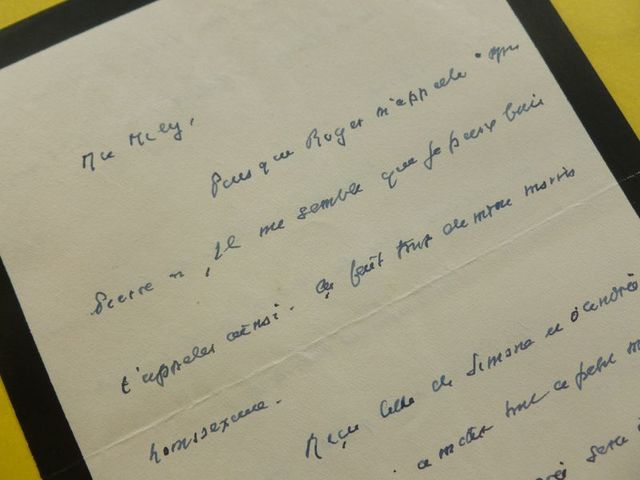 Ma Mily,
Puisque Roger m'appelle "mon
Pierre", il me semble que je peux bien
t'appeler ainsi. ça fait tout de même moins
homosexuel.
Reçu lettre de Simone et d'Andrée
a mettre tout ce petit
sera